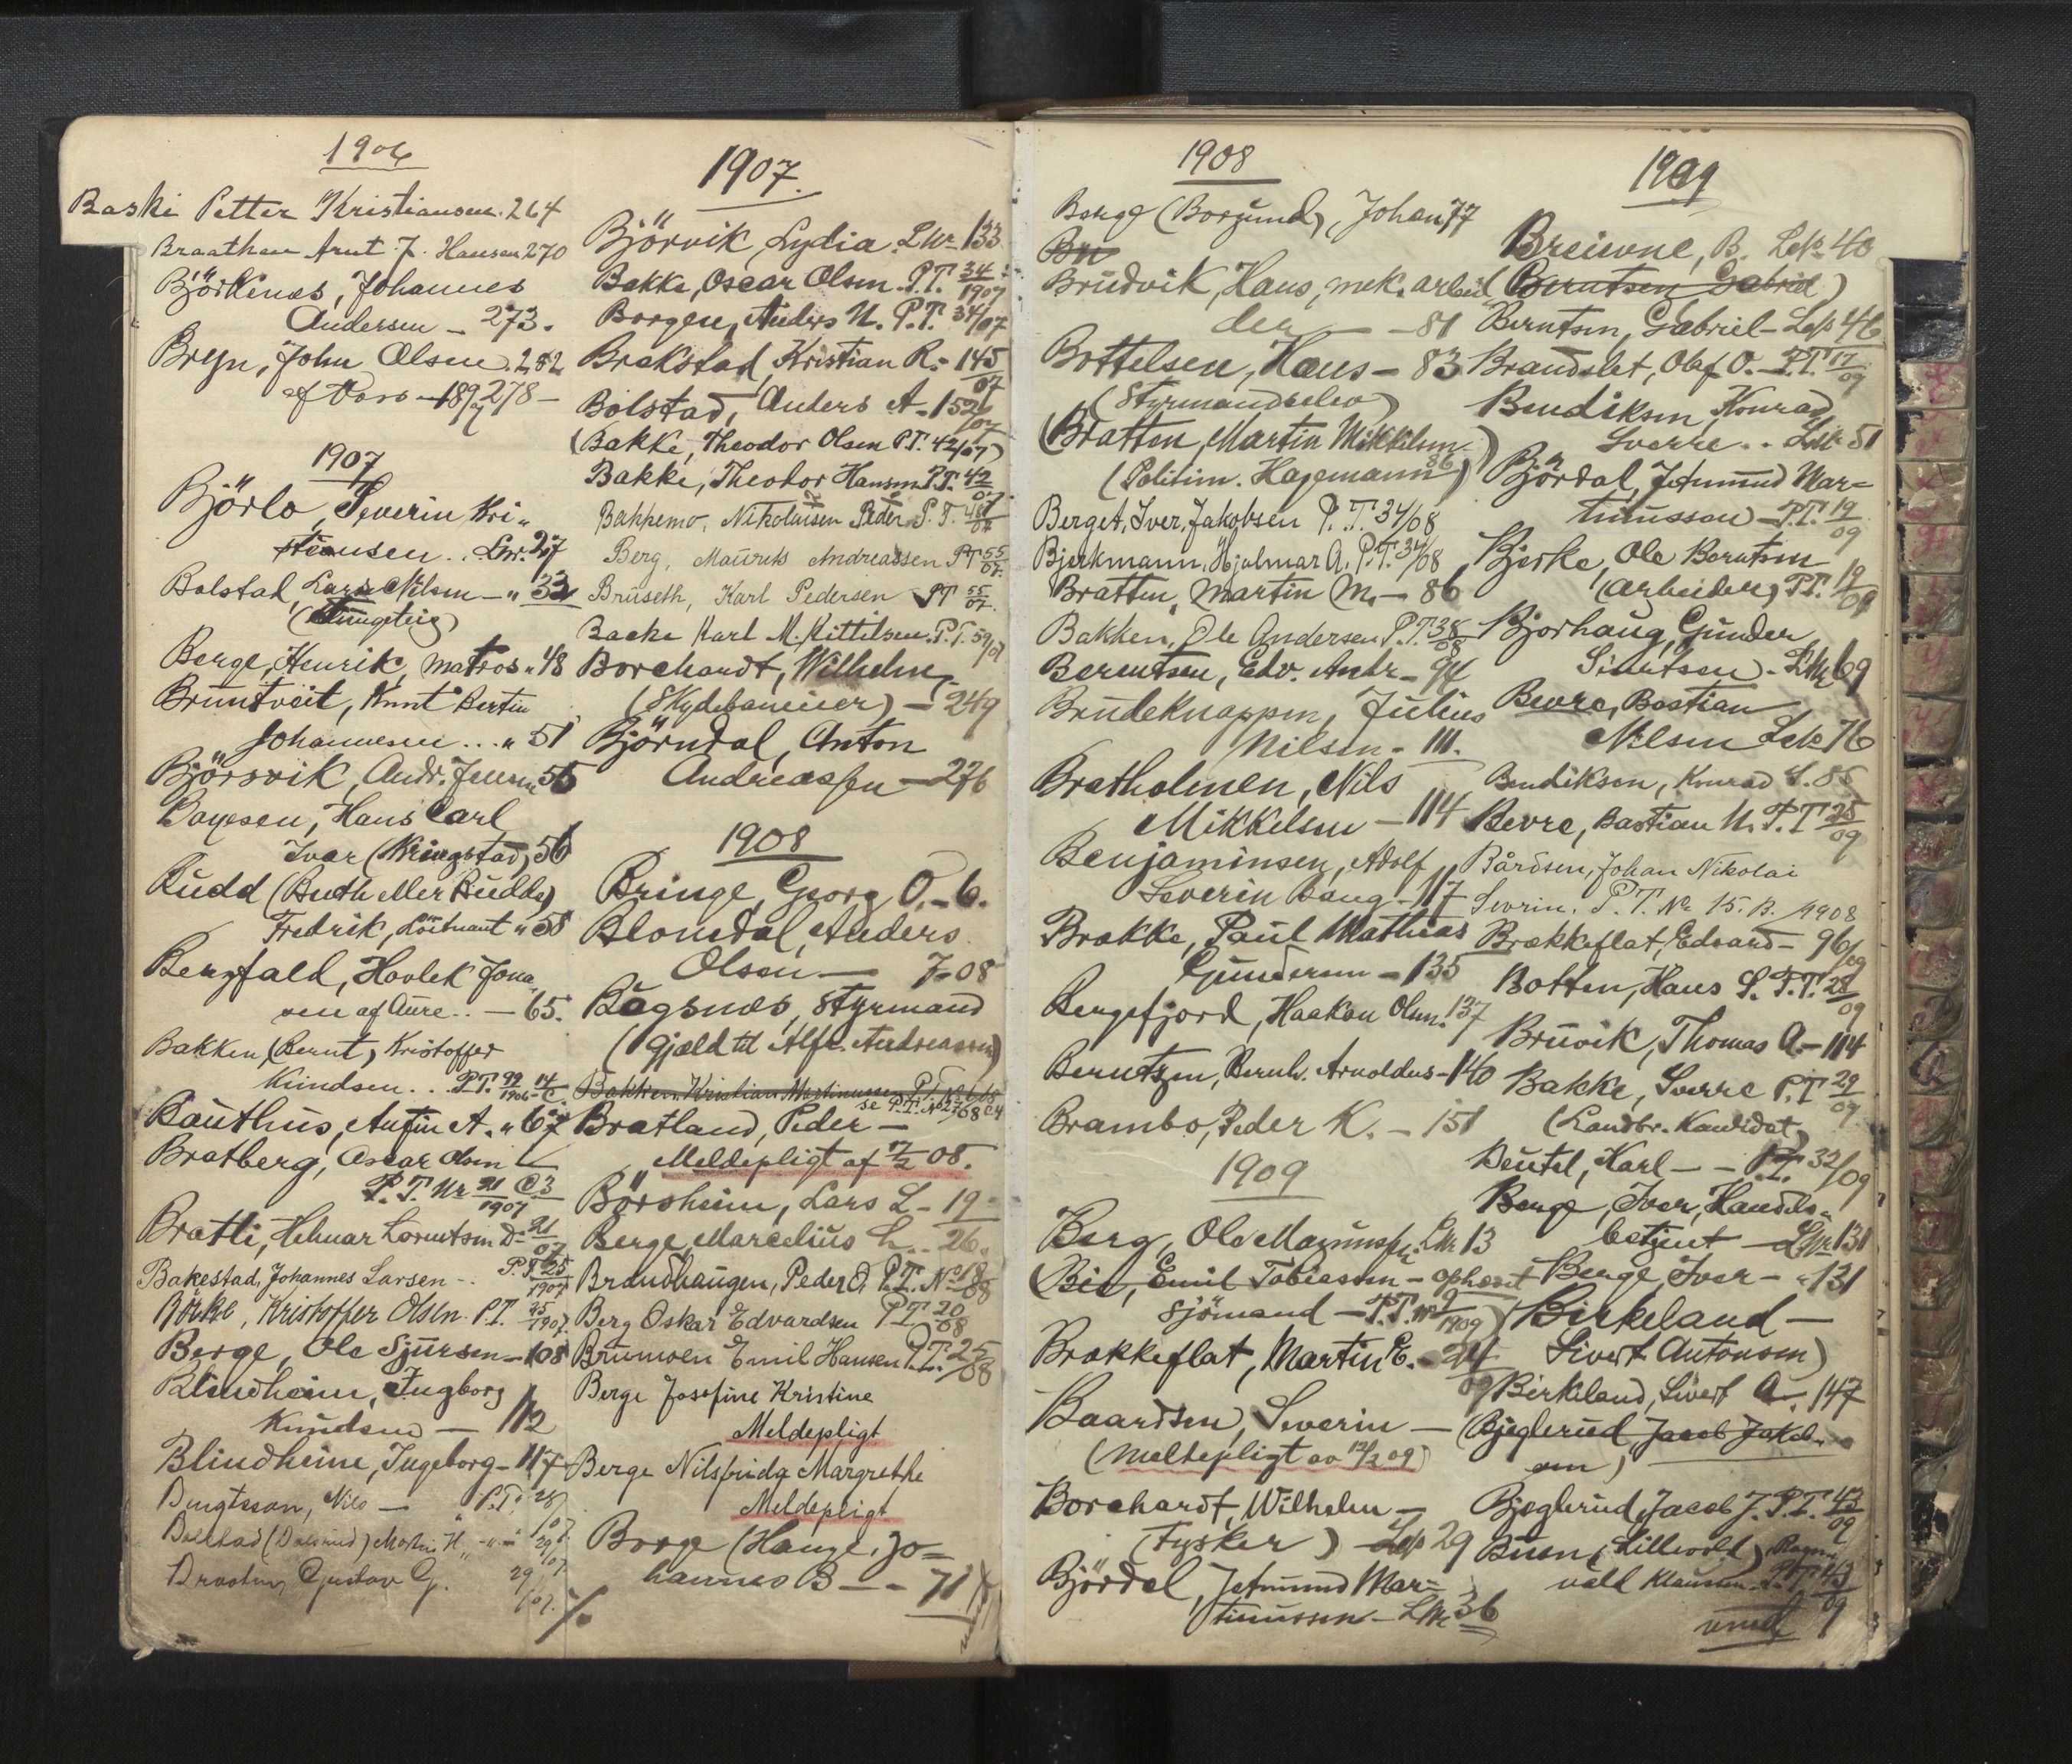 1906
Baski Petter Kristiansen. 264
Braathen Arnt J. Hansen 270
Björkenæs, Johannes
Andersen - 273.
Bryn, John Olsen. 282
af Vors 278 -
1907
Björlo, Severin Kri-
stiansen .. Lnr. 27
Bolstad, Lars Nilsen - " 33
Berge, Henrik, matros " 48
Bruntveit, Knut Bertin
Johannesen ... " 51
Björsvik, Andr. Jensen 55
Boyesen, Hans Carl
Ivar (Kringstad) 56
Budd (Buth eller Budde)
Fredrik, Löitnant " 58
Bergfald, Hovlek Jona-
sen af Aure .. - 65.
Bakken (Bernt) Kristoffer
Knudsen .. P.T. 99/1906 - 14/C
Bauthus, Aufin A. " 67
Bratberg, Oscar Olsen -
P.T. Nr 21/1907 C3
Bratli, Helmar Lorentsen D- 21/07
Bakestad, Johannes Larsen - .. P.T. 25/1907
Bakke, Kristoffer Olsen. P.T. 25/1907.
Berge, Ole Sjursen - 108
Blindheim, Ingborg
Knudsen - 112
Blindheim, Ingeborg - 117
Bengtsson, Nils - P.T. 28/07
Gustav G. 29/07.
1907.
Björvik, Lydia. LNr 133
Bakke, Oscar Olsen. P.T. 34/1907
Borgen, Anders N. P.T. 34/07
Brekstad, Kristian R. - 145/07
Bolstad, Anders A - 152/07
(Bakke, Theodor Olsen P.T. 42/07)
Bakke, Theodor Hansen P.T. 42/07.
Bakkemo, Nikolaisen Peder P.T. 48/07
Berg, Maurits Andreassen PT 55/07.
Bruseth, Karl Pedersen PT 55/07.
Backe Karl M. Kittilsen. P.T. 59/07
Borchardt, Wilhelm,
(Skydebaneeier) - 249
Björndal, Anton
Andreassen - 276
1908
Bringe, Georg O. - 6.
Blomdal, Anders
Olsen - 7-08
Bågsnes, Styrmand
(Gjæld til Alfr. Andreassen)
Bakken Kristian Martinussen P.T.
se P.T. No 27/08 C4
Bratland, Peder -
Meldepligt af 17/2 08.
Börsheim, Lars L - 19 -
Berge, Marcelius L. .. 26.
Brandhaugen, Peder O P.T. No 18/08
Berg Oskar Edvardsen P.T. 20/08
Brumoen Emil Hansen P.T. 25/08
Berge Josefine Kristine
Meldepligt
Berge Nilsfrida Margrethe
Meldepligt
Borge (Hauge, Jo-
hannes B - - 71
%
1908
Berge (Borgund), Johan 77
Bru
Brudvik, Hans, mek. arbei
der - - 81
Bottelsen, Hans - 83
(Styrmandselev)
(Bratten, Martin Mikkelsen 86)
(Politim. Hagemann)
Berget, Iver Jakobsen P.T. 34/08
Bjerkmann, Hjalmar A. P.T. 34/08
Bratten, Martin M. - 86
Bakken, Ole Andersen P.T. 38/08
Berentsen, Edv. Andr. - 94
Brudeknappen, Julius
Nilsen - 111.
Bratholmen, Nils
Mikkelsen - 114
Benjaminsen, Adolf
Severin Bang - 117
Brække, Paul Mathias
Gundersen - 135
Bergefjord, Haakon Olsen. 137
Berntzen, Bernh. Arnoldus - 140
Brambo, Peder K. - 151
1909
Berg, Ole Magnussen. LNr 13
(Bie, Emil Tobiassen - ophørt
sjömand - P.T. No 9/1909)
Brækkeflat, Martin E. - 24/09
Baardsen, Severin -
(Meldepligt av 12/2 09)
Borchardt, Wilhelm -
(Tysker) - Løp 29
Björdal, Jetmund Mar-
tinussen - LNr 36
1909
Breivne, B. Løp 40
(Berntsen Gabriel)
Berntsen, Gabriel - Løp 46
Brandslet, Olaf O. - P.T. 17/09
Bendiksen, Konrad
Sverre .. LNr 51
Björdal, Jetmund Mar-
tinusson - P.T. 19/09
Bjerke, Ole Berntsen
(arbeider) P.T. 19/09
Bjorhaug, Gunder
Sivertsen - LNr 69
Bevre, Bastian
Nilsen Løp 76
Bendiksen, Konrad S. 85
Bevre, Bastian N. P.T. 25/09
Bårdsen, Johan Nikolai
Sevrin. P.T. Nr 15. B. /1908
Brækkeflat, Edvard - 96/09
Botten, Hans S. P.T. 28/09
Bruvik, Thomas A. - 114
Bakke, Sverre P.T. 29/09
(Landbr. Kandidat)
Beutel, Karl - - P.T. 32/09
Berge, Iver, Handels-
betjent - LNr 131
Berge, Iver - " 131
(Birkeland -
Sivert Antonsen)
Birkeland, Sivert A. - 147
(Bjeglerud, Jacob Jakob-
sen)
Bjeglerud, Jacob J. P.T. 43/09
Buen (Lillevold) Ragn-
vald Klausen. P.T. 43/09
vend